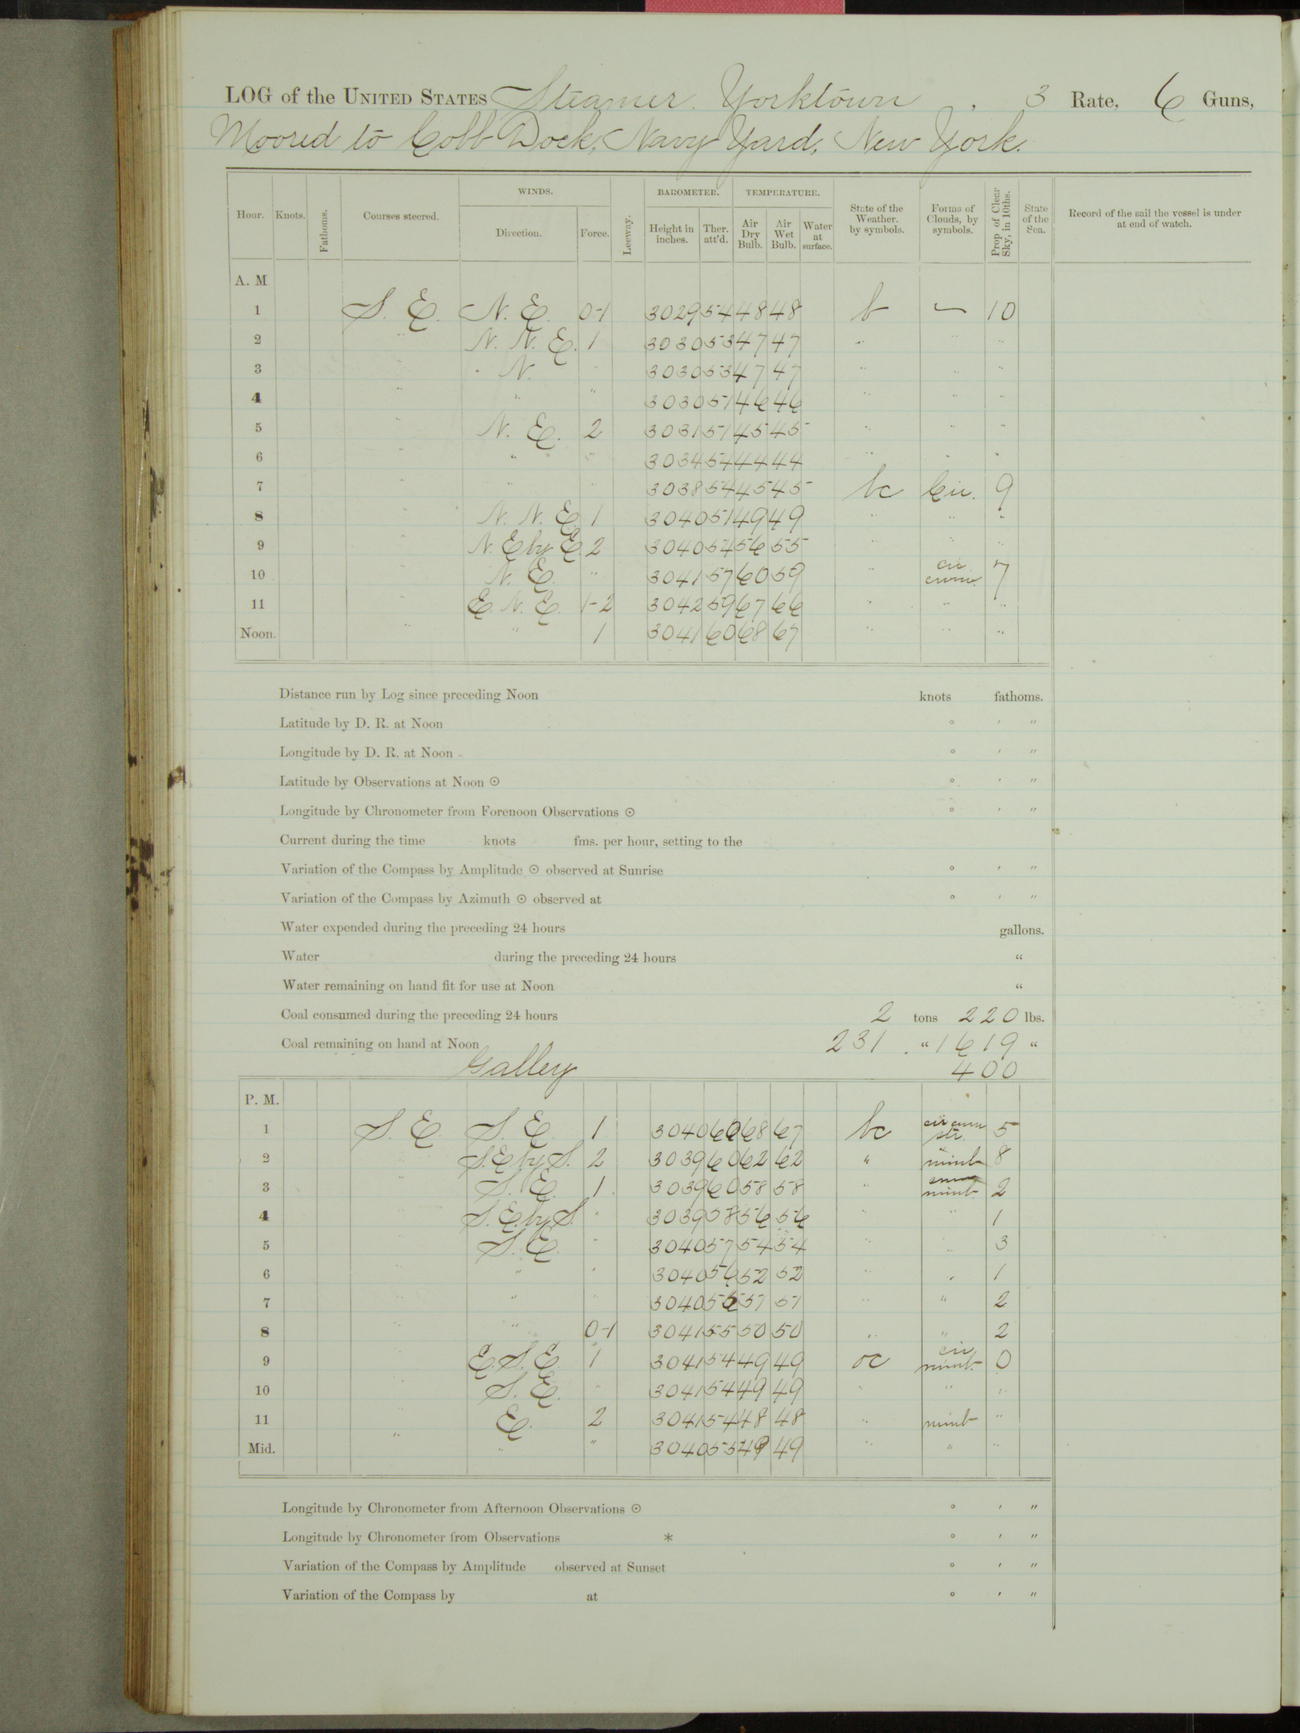 LOG of the UNITED STATES Steamer Yorktown, 3 Rate, 6 Guns,
Moored to Cobb Dock, Navy Yard, New York.
Hour. Knots. Fathoms. Courses steered. WINDS. Direction. Force. Leeway. BAROMETER. Height in inches. Ther. att'd. TEMPERATURE. Air Dry Bulb. Air Wet Bulb. Water at surface. State of the Weather. by symbols. Forms of Clouds, by symbols. Prop of Clear Sky, in 10ths. State of the Sea. Record of the sail the vessel is under at end of watch.
A. M
1 S. E. N. E. 0-1 3029 54 48 48 b — 10
2 " N. N. E. 1 3030 53 47 47 " " "
3 " N. " 3030 53 47 47 " " "
4 " " " 3030 51 46 46 " " "
5 " N. E. 2 3031 51 45 45 " " "
6 " " " 3034 54 44 44 " " "
7 " " " 3038 54 45 45 bc Cir. 9
8 " N. N. E. 1 3040 51 49 49 " " "
9 " N. E by E 2 3040 54 56 55 " " "
10 " N. E. " 3041 57 60 59 " cir cum 7
11 " E. N. E. 1-2 3042 59 67 66 " " "
Noon. " " 1 3041 60 68 67 " " "
Distance run by Log since preceding Noon knots fathoms.
Latitude by D. R. at Noon ° ' "
Longitude by D. R. at Noon ° ' "
Latitude by Observations at Noon ⊙ ° ' "
Longitude by Chronometer from Forenoon Observations ⊙ ° ' "
Current during the time knots fms. per hour, setting to the
Variation of the Compass by Amplitude ⊙ observed at Sunrise ° ' "
Variation of the Compass by Azimuth ⊙ observed at ° ' "
Water expended during the preceding 24 hours gallons.
Water during the preceding 24 hours "
Water remaining on hand fit for use at Noon "
Coal consumed during the preceding 24 hours 2 tons 220 lbs.
Coal remaining on hand at Noon 231 " 1619 "
Galley 400
P. M.
1 S. E. S. E. 1 3040 60 68 67 bc cir cum str. 5
2 S. E by S. 2 3039 60 62 62 " nimb 8
3 " S. E. 1 3039 60 58 58 " nimb 2
4 S. E. by S. " 3039 58 56 56 " " 1
5 " S. E. " 3040 57 54 54 " " 3
6 " " " 3040 56 52 52 " " 1
7 " " " 3040 56 51 51 " " 2
8 " " 0-1 3041 55 50 50 " " 2
9 " E. S. E. 1 3041 54 49 49 oc cir nimb 0
10 " S. E. " 3041 54 49 49 " " "
11 E. 2 3041 54 48 48 " nimb "
Mid. " " " 3040 55 49 49 " " "
Longitude by Chronometer from Afternoon Observations ⊙ ° ' "
Longitude by Chronometer from Observations * ° ' "
Variation of the Compass by Amplitude observed at Sunset ° ' "
Variation of the Compass by at ° ' "